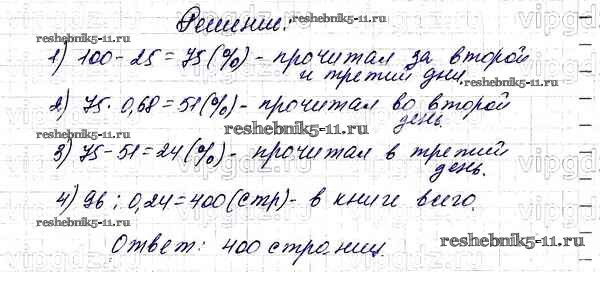 Решение:
reshebnik5-11.ru
reshebnik5-11.ru
1) 100 - 25 = 75 (%) - прочитал за второй
и третий дни.
2) 75 · 0,68 = 51 (%) - прочитал во второй
день.
reshebnik5-11.ru
3) 75 - 51 = 24 (%) - прочитал в третий
день.
4) 96 : 0,24 = 400 (стр) - в книге всего.
reshebnik5-11.ru
reshebnik5-11.ru
Ответ: 400 страниц.
reshebnik5-11.ru